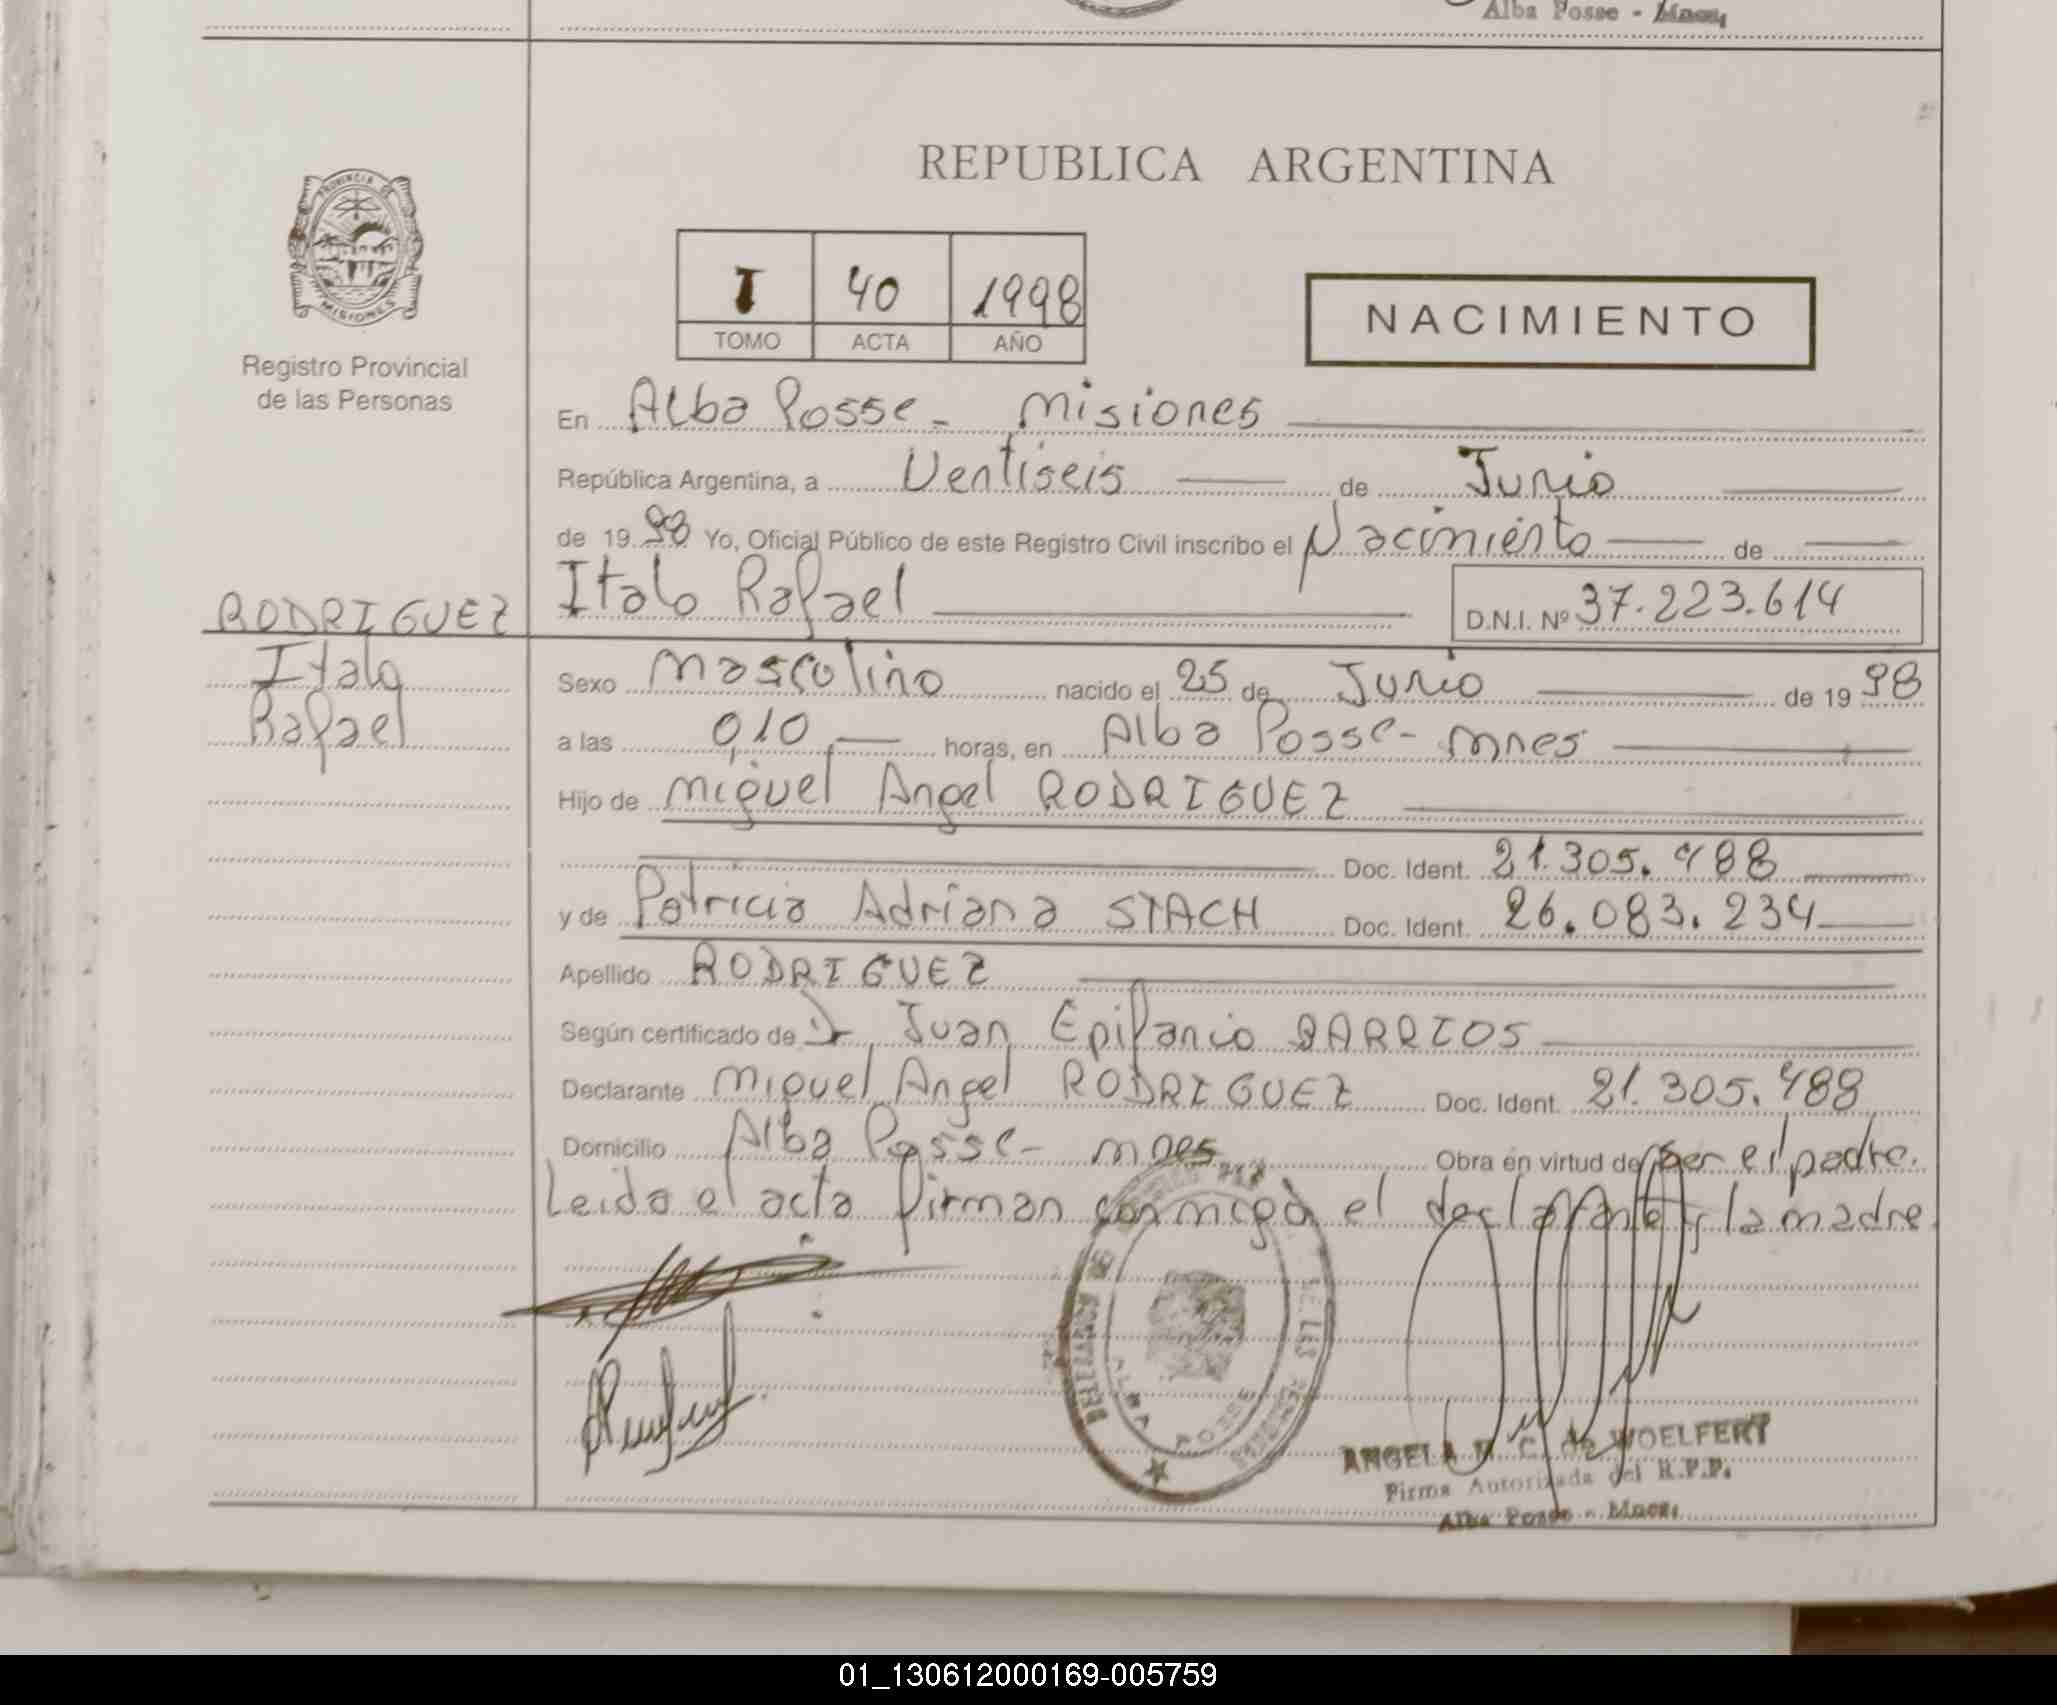 Alba Posse - Mnes,
REPUBLICA ARGENTINA
PROVINCIA DE
MISIONES
Registro Provincial
de las Personas
I 40 1998
TOMO ACTA AÑO
NACIMIENTO
En Alba Posse - Misiones
República Argentina, a Ventiseis de Junio
de 19 98 Yo, Oficial Público de este Registro Civil inscribo el Nacimiento de
Italo Rafael D.N.I. Nº 37.223.614
RODRIGUEZ
Italo
Rafael
Sexo Masculino nacido el 25 de Junio de 19 98
a las 0,10 horas, en Alba Posse - Mnes
Hijo de Miguel Angel RODRIGUEZ
Doc. Ident. 21.305.488
y de Patricia Adriana STACH Doc. Ident. 26.083.234
Apellido RODRIGUEZ
Según certificado de Dr Juan Epifanio BARRIOS
Declarante Miguel Angel RODRIGUEZ Doc. Ident. 21.305.488
Domicilio Alba Posse - Mnes Obra en virtud de ser el padre.
Leida el acta firman conmigo el declarante y la madre.
DE LAS PERSONAS
ALBA POSSE
ANGELA C. de WOELFERT
Firma Autorizada del R.P.P.
Alba Posse - Mnes,
01_130612000169-005759